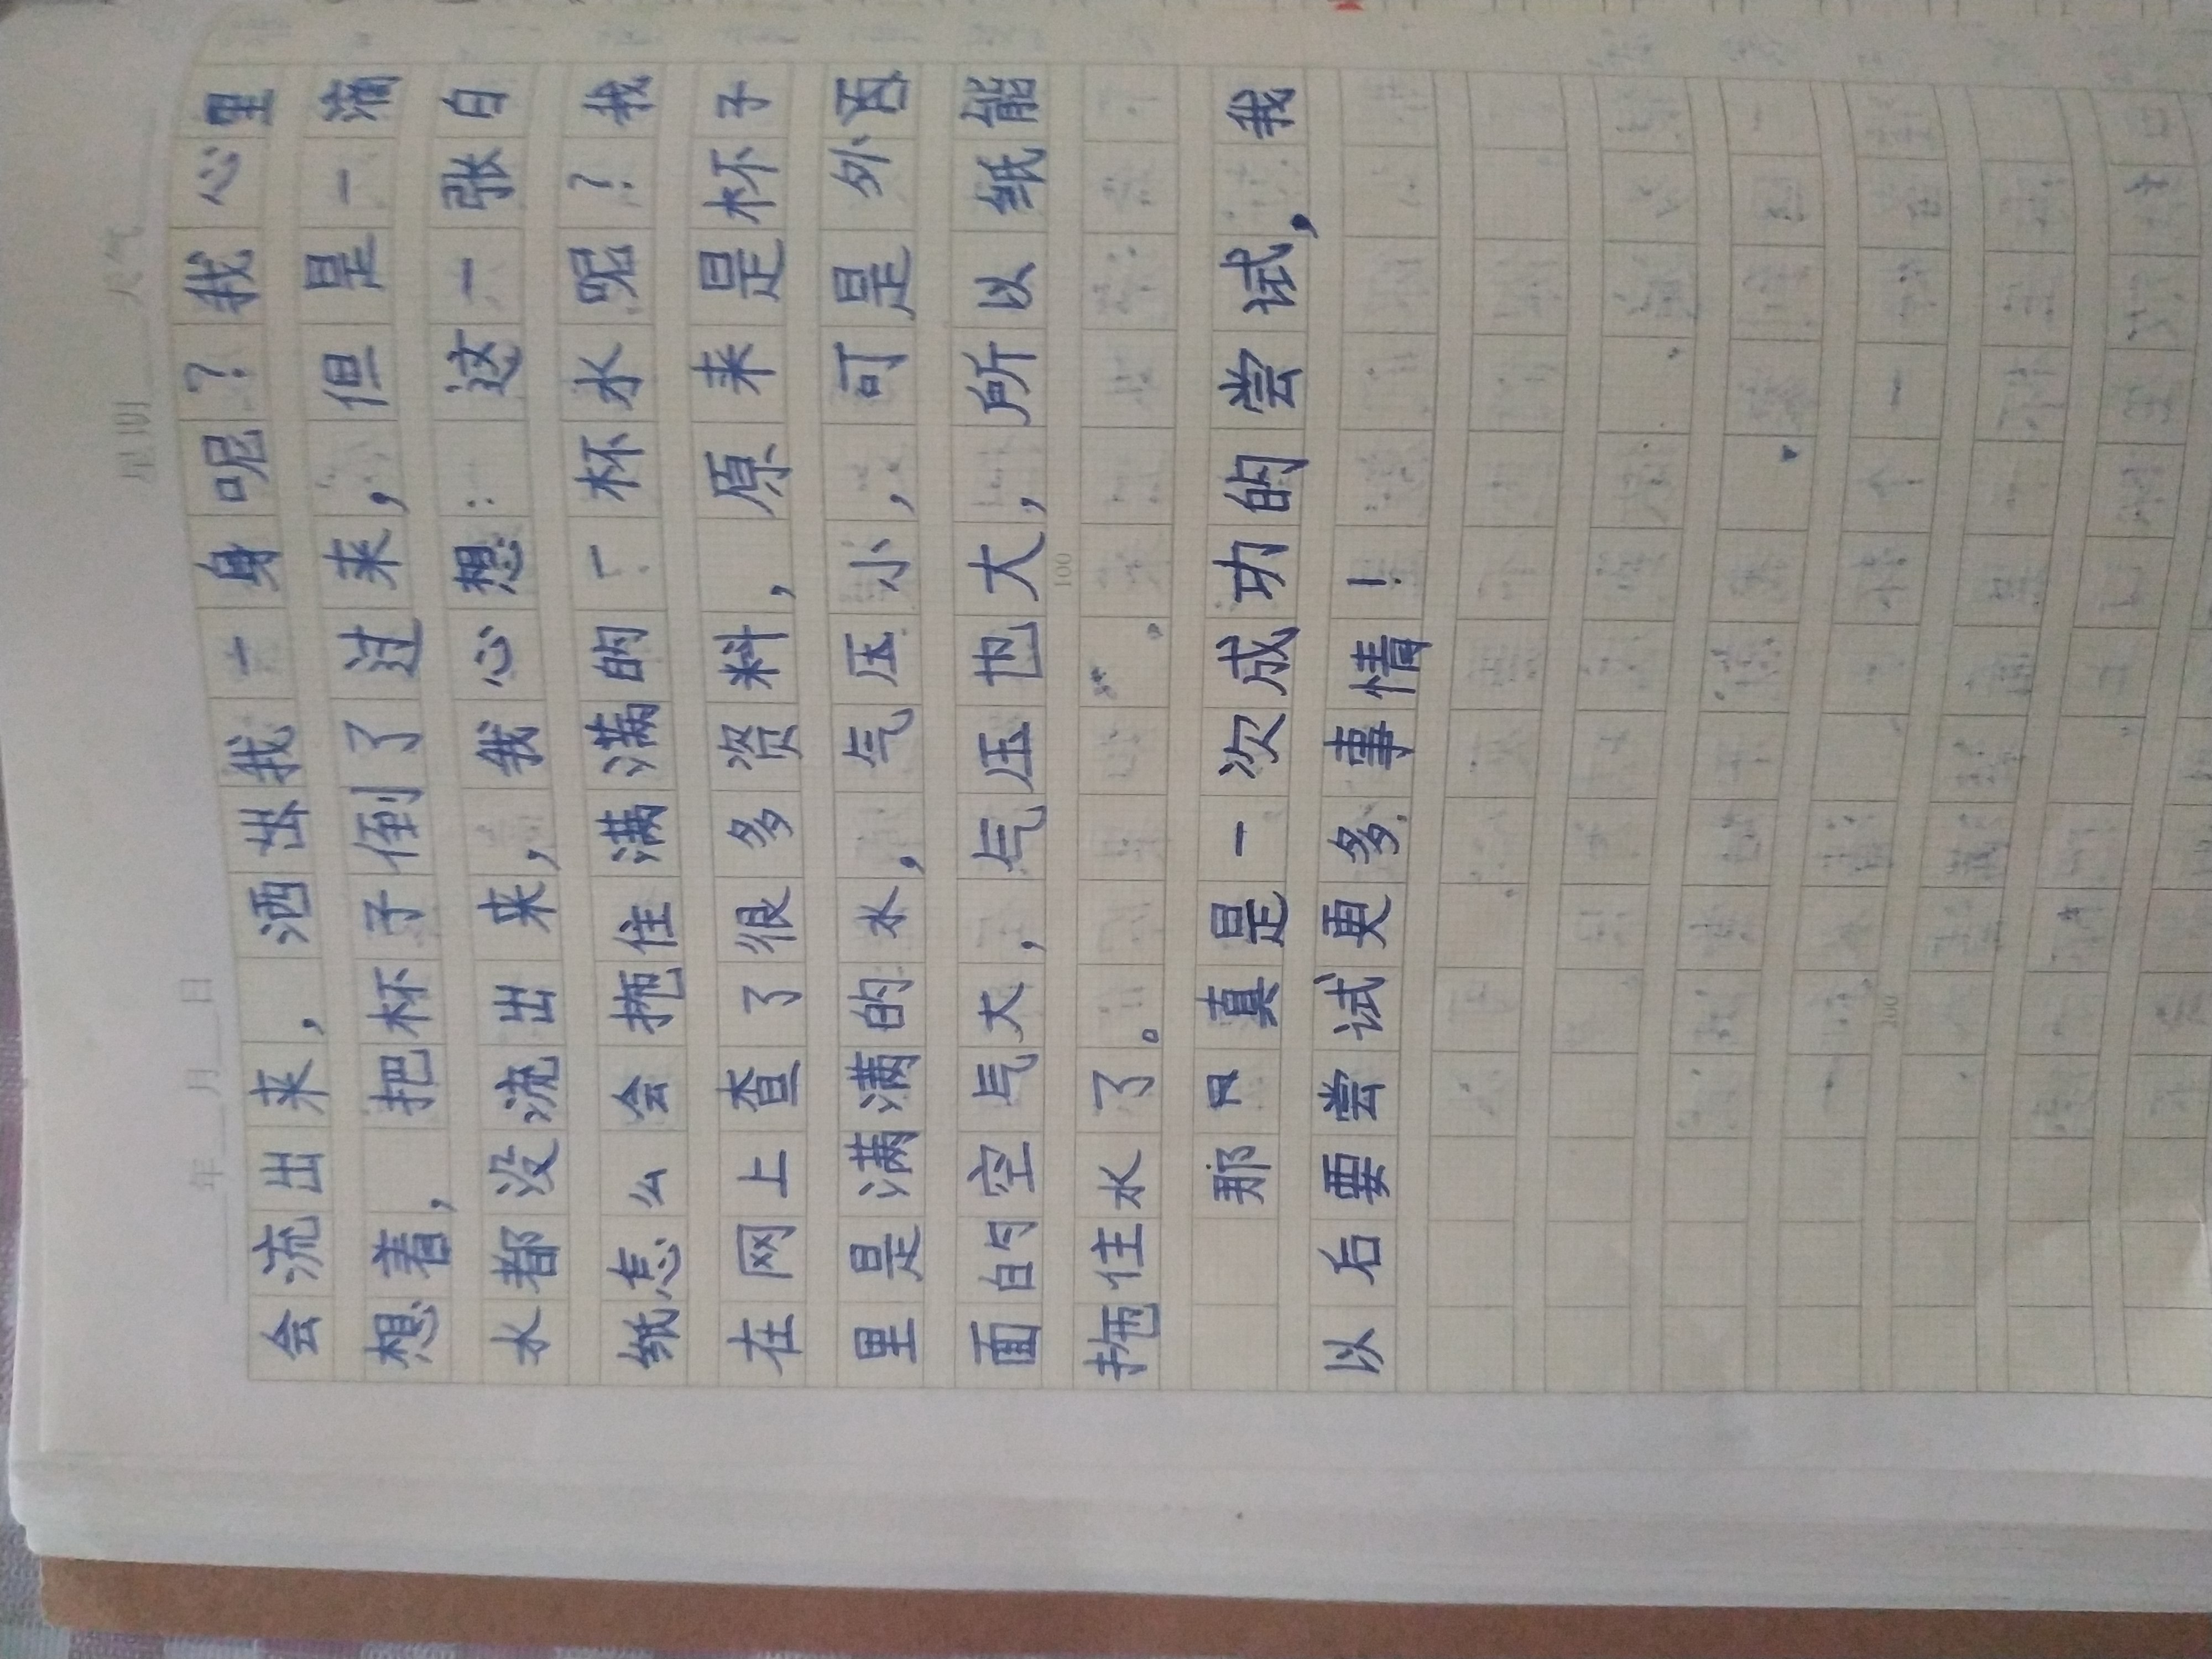 年 月 日 星期 天气
会流出来，洒出我一身呢？我心里
想着，把杯子倒了过来，但是一滴
水都没流出来，我心想：这一张白
纸怎么会拖住满满的一杯水呢？我
在网上查了很多资料，原来是杯子
里是满满的水，气压小，可是外面
面的空气大，气压也大，所以纸能
100
拖住水了。
那只真是一次成功的尝试，我
以后要尝试更多事情！
200